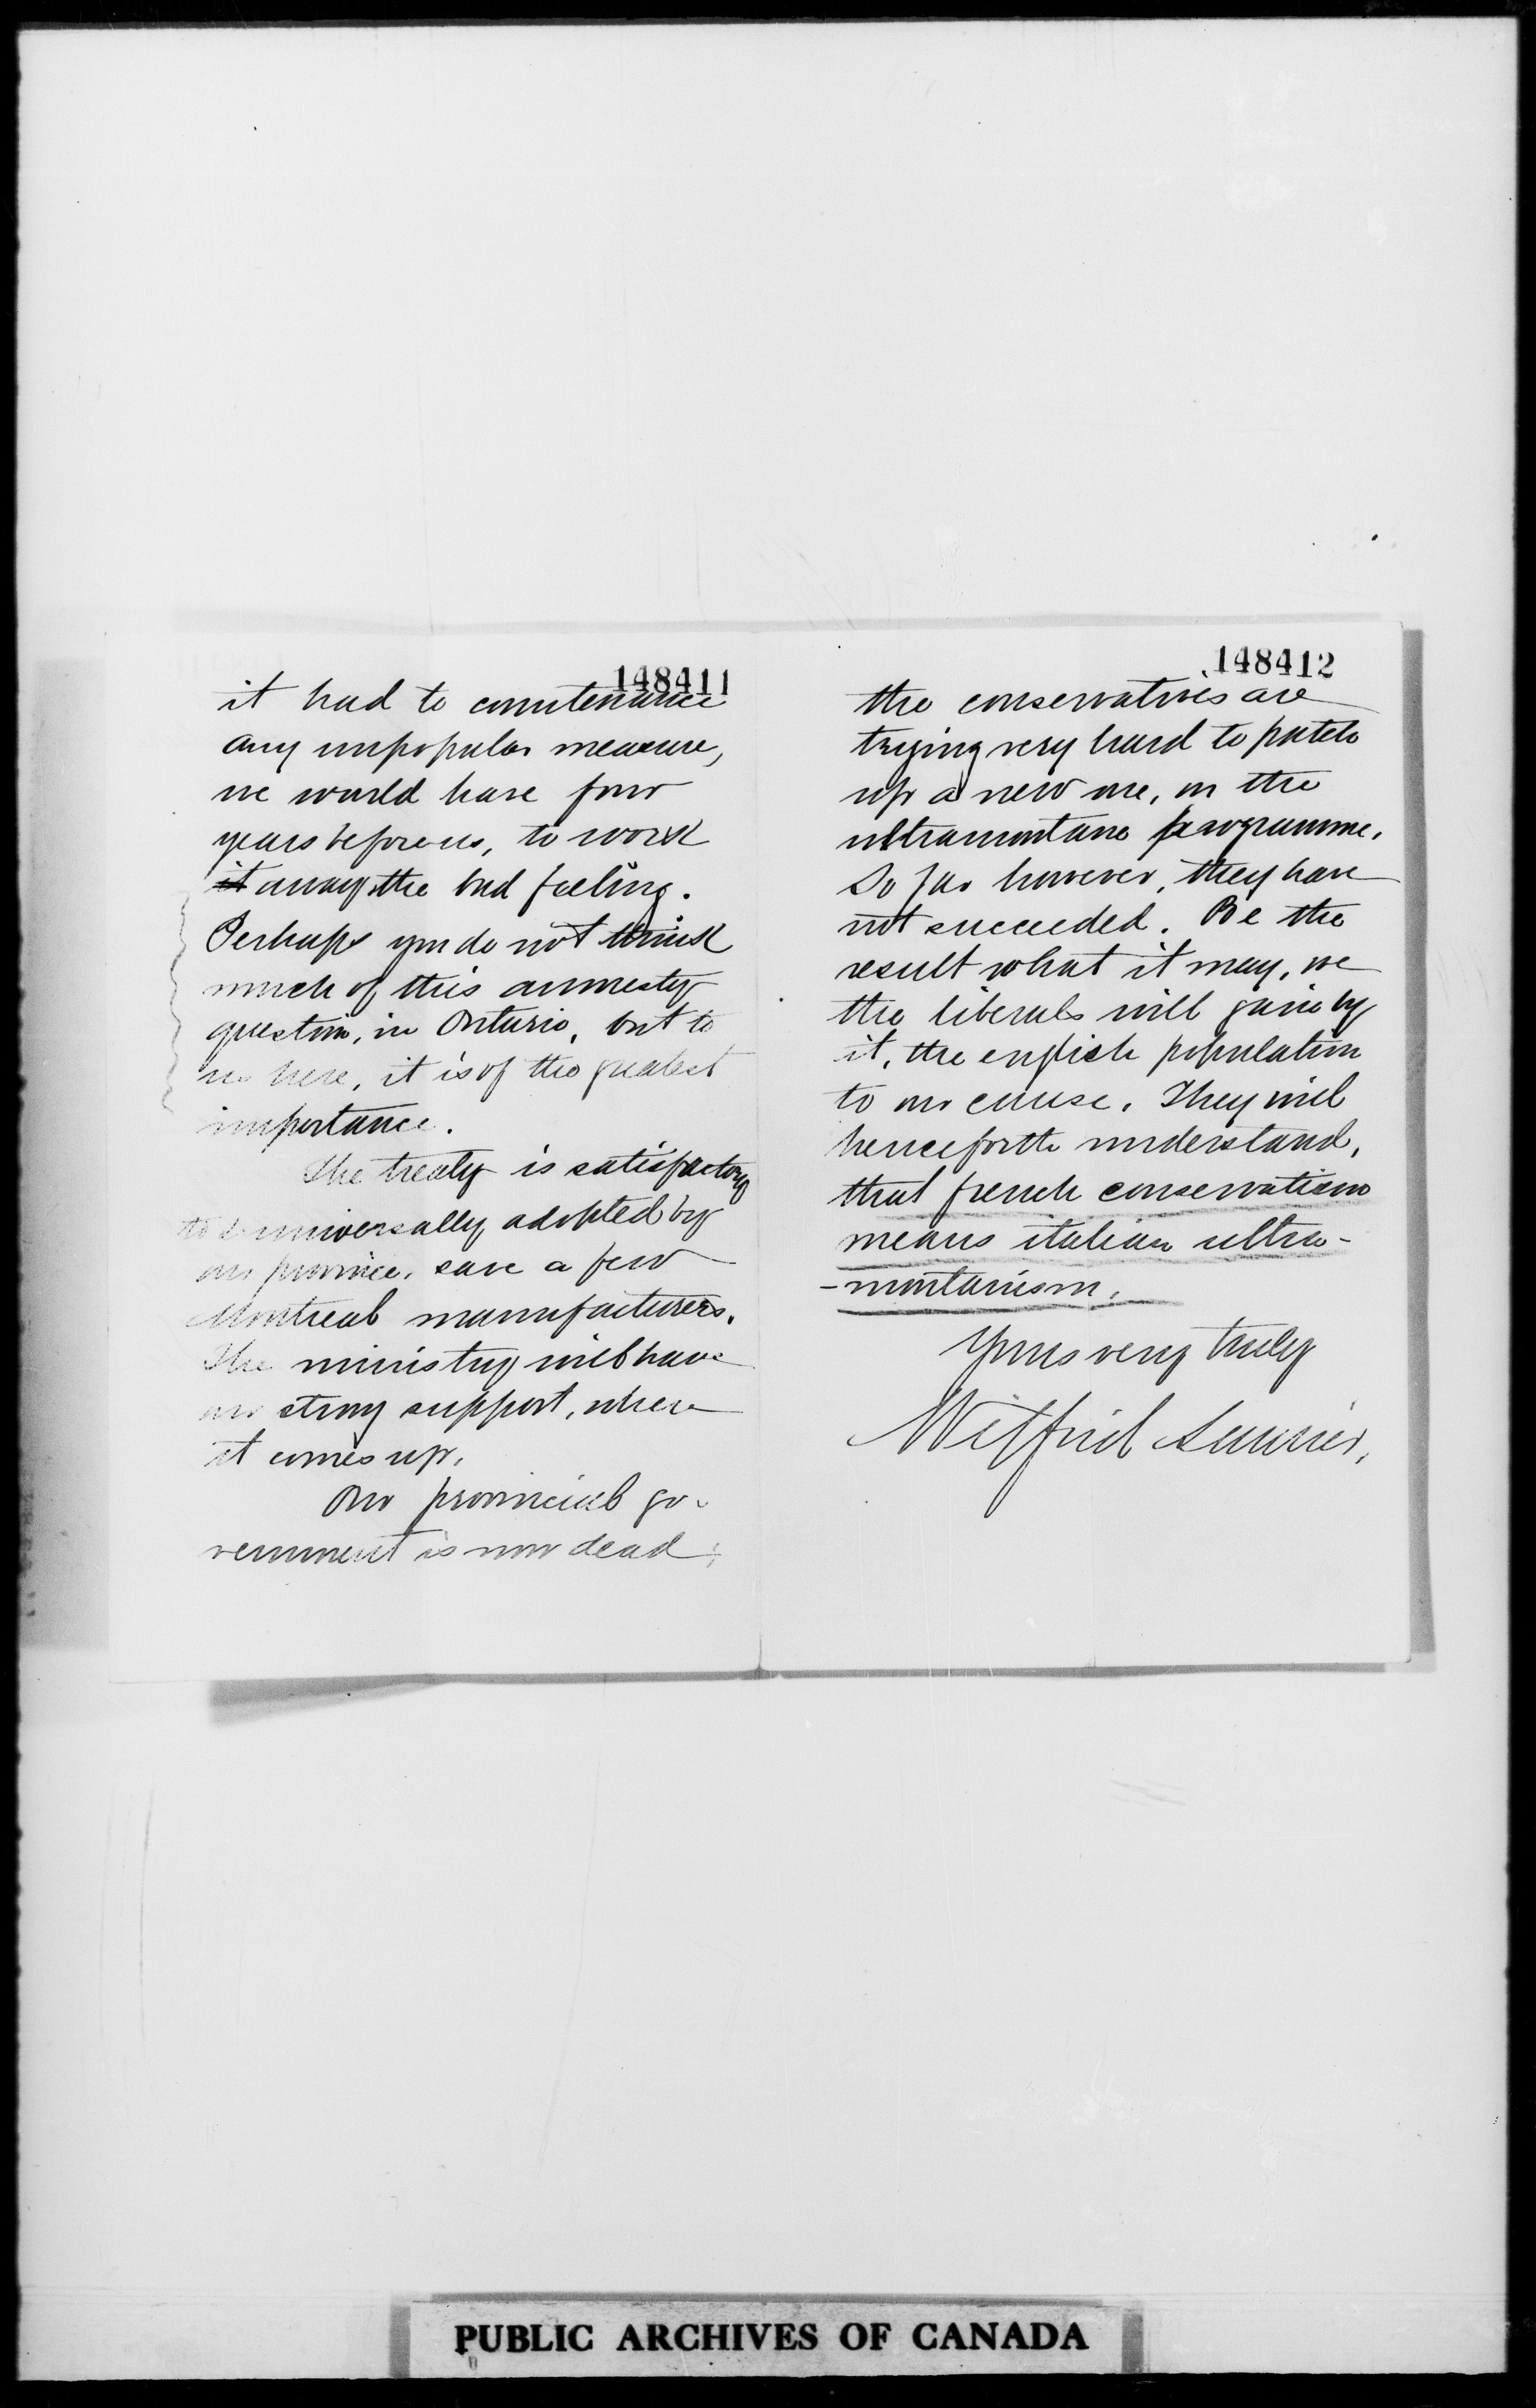 148411
it had to countenance
any unpopular measure,
we would have four
years before us, to work
it away the bad feeling.
Perhaps you do not think
much of this amnesty
question, in Ontario, but to
us here, it is of the greatest
importance.
The treaty is satisfactory
universally adopted by
our province, save a few
Montreal manufacturers.
The ministry will have
our strong support, when
it comes up.
Our provincial go-
vernment is now dead;
148412
the conservatives are
trying very hard to patch
up a new one, on the
ultramontane programme.
So far however, they have
not succeeded. Be the
result what it may, we
the liberals will gain by
it, the english population
to our cause. They will
henceforth understand,
that french conservatism
means italian ultra-
-montanism.
Yours very truly
Wilfrid Laurier,
PUBLIC ARCHIVES OF CANADA